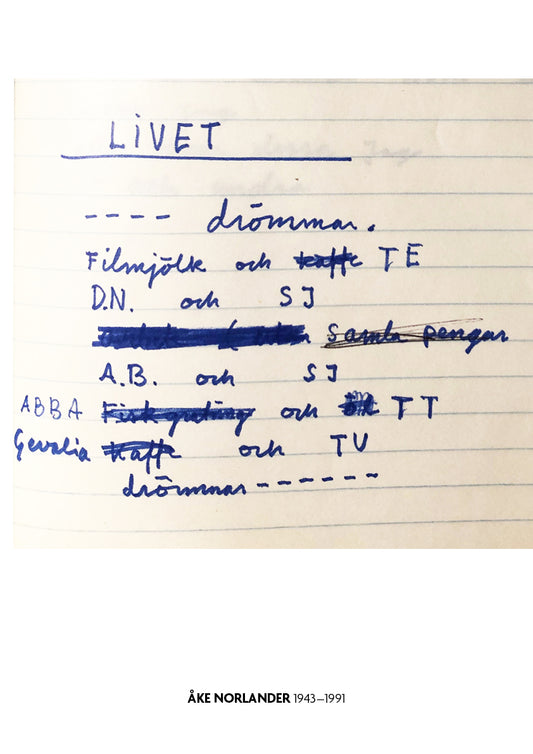 LIVET
---- drömmar.
Filmjölk och kaffe TE
D.N. och SJ
samla pengar
A.B. och SJ
ABBA Fiskgratäng och öl TT
Gevalia kaffe och TV
drömmar------
ÅKE NORLANDER 1943–1991